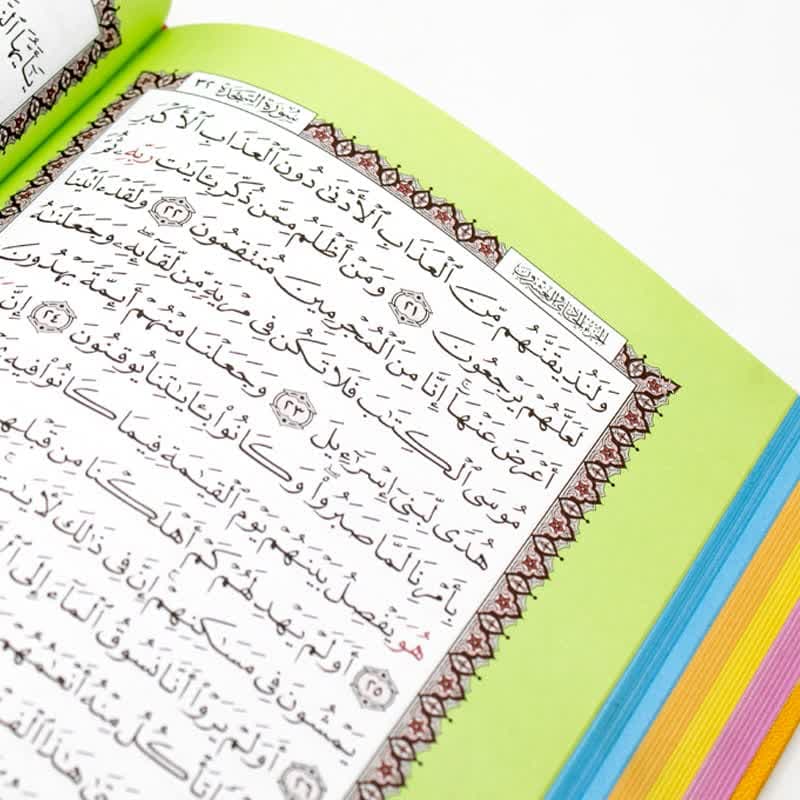 سُورَةُ السَّجْدَةِ ٣٢
الجزء الحادي والعشرون
وَلَنُذِيقَنَّهُم مِّنَ ٱلْعَذَابِ ٱلْأَدْنَىٰ دُونَ ٱلْعَذَابِ ٱلْأَكْبَرِ
لَعَلَّهُمْ يَرْجِعُونَ ٢١ وَمَنْ أَظْلَمُ مِمَّن ذُكِّرَ بِـَٔايَٰتِ رَبِّهِۦ ثُمَّ
أَعْرَضَ عَنْهَآ ۚ إِنَّا مِنَ ٱلْمُجْرِمِينَ مُنتَقِمُونَ ٢٢ وَلَقَدْ ءَاتَيْنَا
مُوسَى ٱلْكِتَٰبَ فَلَا تَكُن فِى مِرْيَةٍ مِّن لِّقَآئِهِۦ ۖ وَجَعَلْنَٰهُ
هُدًى لِّبَنِىٓ إِسْرَٰٓءِيلَ ٢٣ وَجَعَلْنَا مِنْهُمْ أَئِمَّةً يَهْدُونَ
بِأَمْرِنَا لَمَّا صَبَرُوا۟ ۖ وَكَانُوا۟ بِـَٔايَٰتِنَا يُوقِنُونَ ٢٤ إِنَّ
هُوَ يَفْصِلُ بَيْنَهُمْ يَوْمَ ٱلْقِيَٰمَةِ فِيمَا كَانُوا۟ فِيهِ
٢٥ أَوَلَمْ يَهْدِ لَهُمْ كَمْ أَهْلَكْنَا مِن قَبْلِهِم
يَمْشُونَ فِى مَسَٰكِنِهِمْ ۚ إِنَّ فِى ذَٰلِكَ لَءَايَٰتٍ
٢٦ أَوَلَمْ يَرَوْا۟ أَنَّا نَسُوقُ ٱلْمَآءَ إِلَى
تَأْكُلُ مِنْهُ أَنْعَٰمُهُمْ
هَٰذَا